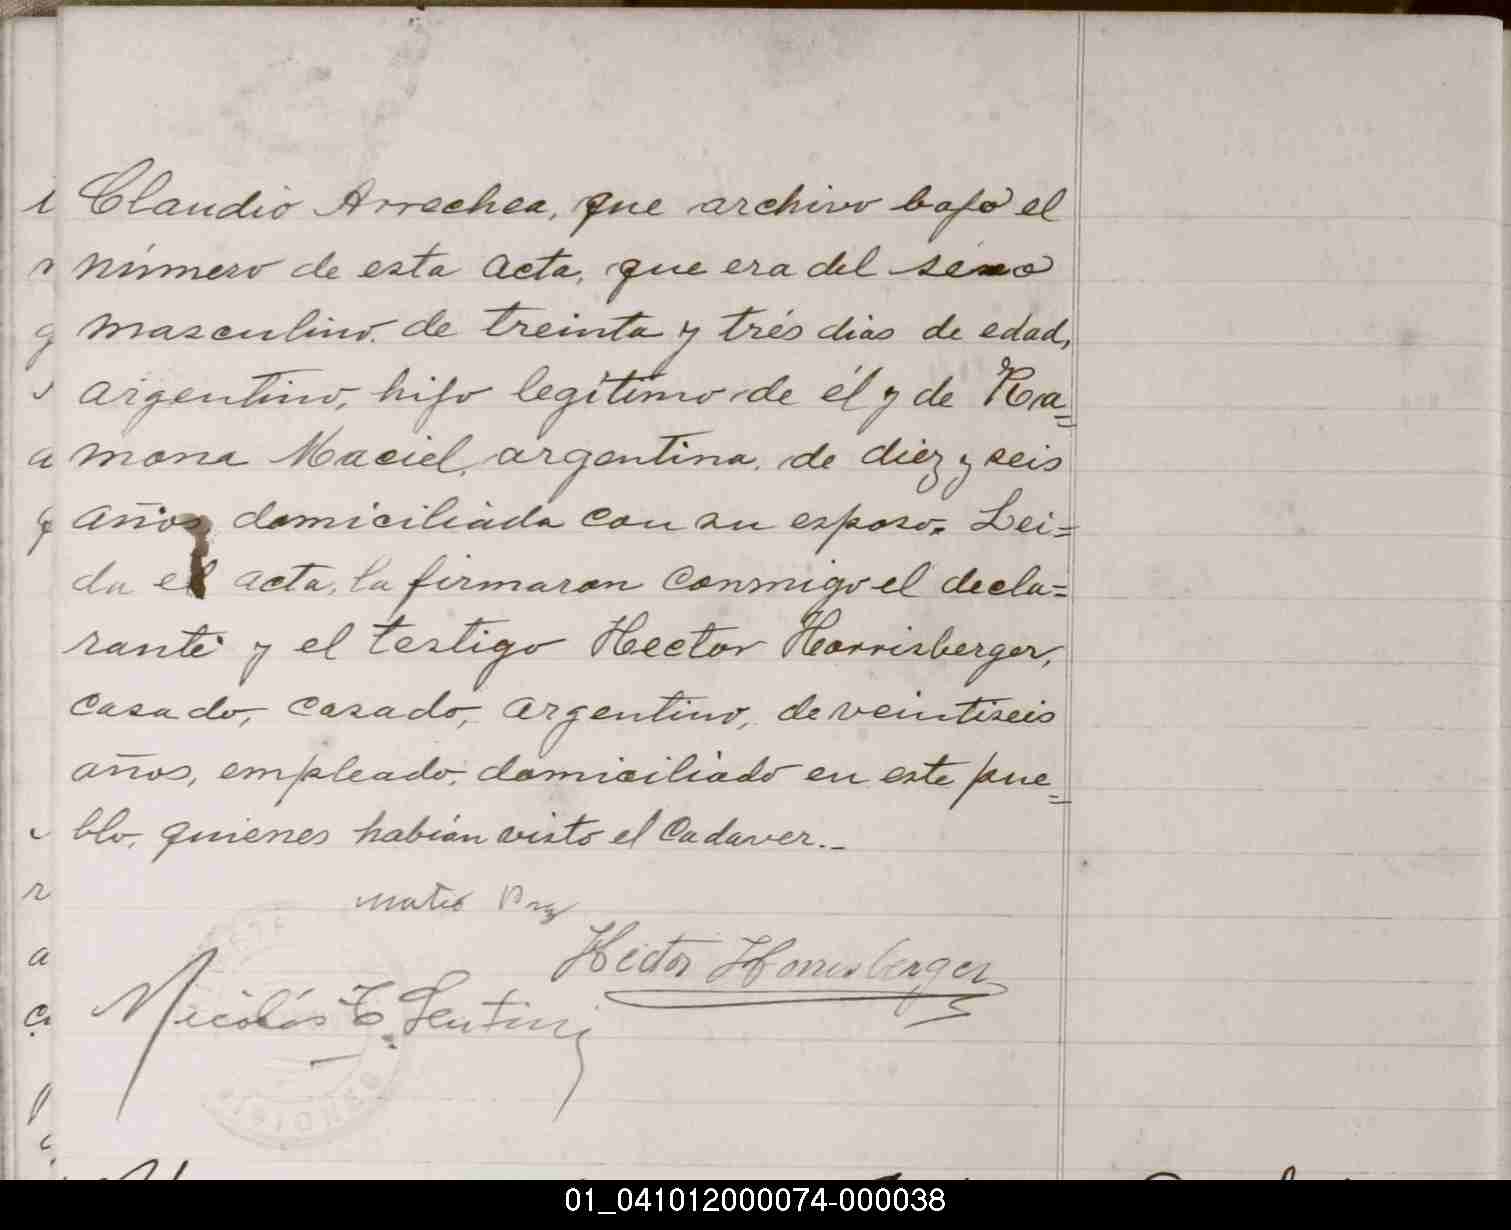 Claudio Arrechea, que archivo bajo el
número de esta acta, que era del sexo
masculino. de treinta y trés dias de edad,
argentino, hijo legítimo de él y de Ra=
mona Maciel, argentina, de diez y seis
años, domiciliada con su esposo. Lei=
da el acta, la firmaron conmigo el decla=
rante y el testigo Hector Horrisberger,
casado, casado, argentino, de veintiseis
años, empleado, domiciliado en este pue=
blo, quienes habián visto el cadaver._
Hector Horrisberger
Nicolás
MISIONES
01_041012000074-000038